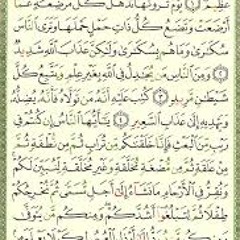 عَظِيمٌ ۝١ يَوْمَ تَرَوْنَهَا تَذْهَلُ كُلُّ مُرْضِعَةٍ عَمَّآ
أَرْضَعَتْ وَتَضَعُ كُلُّ ذَاتِ حَمْلٍ حَمْلَهَا وَتَرَى ٱلنَّاسَ
سُكَٰرَىٰ وَمَا هُم بِسُكَٰرَىٰ وَلَٰكِنَّ عَذَابَ ٱللَّهِ شَدِيدٌ
۝٢ وَمِنَ ٱلنَّاسِ مَن يُجَٰدِلُ فِى ٱللَّهِ بِغَيْرِ عِلْمٍ وَيَتَّبِعُ كُلَّ
شَيْطَٰنٍ مَّرِيدٍ ۝٣ كُتِبَ عَلَيْهِ أَنَّهُۥ مَن تَوَلَّاهُ فَأَنَّهُۥ يُضِلُّهُۥ
وَيَهْدِيهِ إِلَىٰ عَذَابِ ٱلسَّعِيرِ ۝٤ يَٰٓأَيُّهَا ٱلنَّاسُ إِن كُنتُمْ فِى
رَيْبٍ مِّنَ ٱلْبَعْثِ فَإِنَّا خَلَقْنَٰكُم مِّن تُرَابٍ ثُمَّ مِن نُّطْفَةٍ ثُمَّ
مِنْ عَلَقَةٍ ثُمَّ مِن مُّضْغَةٍ مُّخَلَّقَةٍ وَغَيْرِ مُخَلَّقَةٍ لِّنُبَيِّنَ لَكُمْ
وَنُقِرُّ فِى ٱلْأَرْحَامِ مَا نَشَآءُ إِلَىٰٓ أَجَلٍ مُّسَمًّى ثُمَّ نُخْرِجُكُمْ
طِفْلًا ثُمَّ لِتَبْلُغُوٓا۟ أَشُدَّكُمْ وَمِنكُم مَّن يُتَوَفَّىٰ